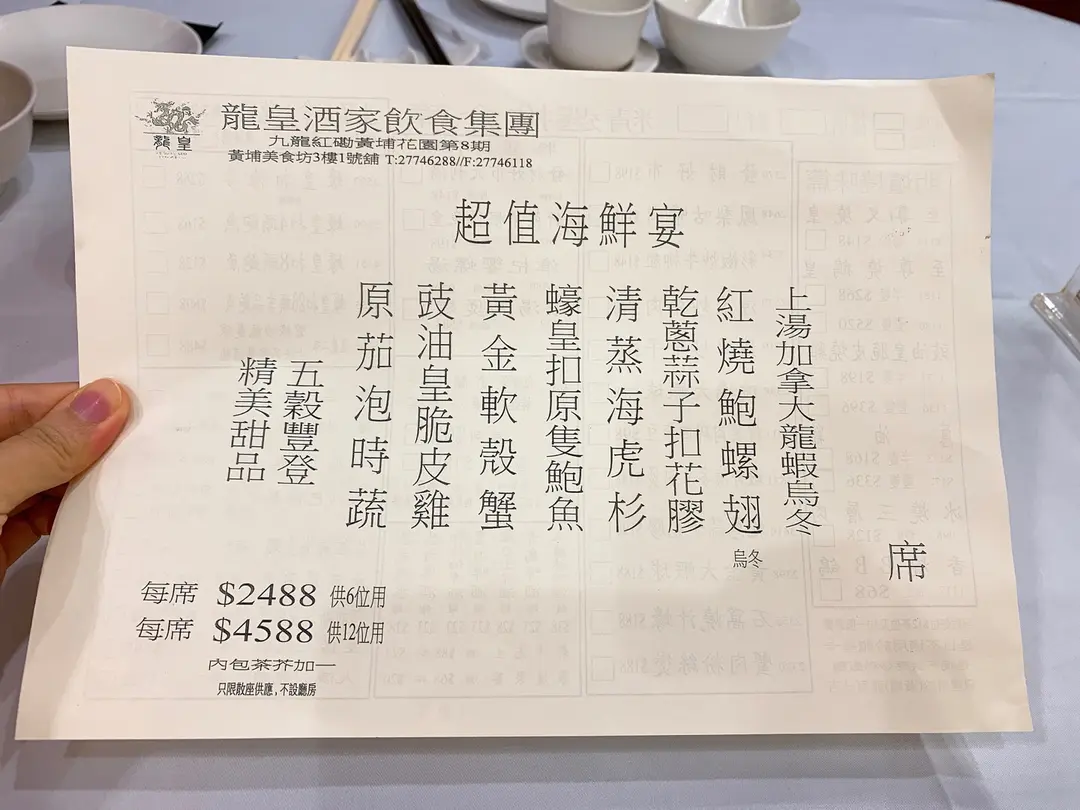 龍皇
龍皇酒家飲食集團
九龍紅磡黃埔花園第8期
黃埔美食坊3樓1號舖 T:27746288//F:27746118
超值海鮮宴
席
上湯加拿大龍蝦烏冬
紅燒鮑螺翅
烏冬
乾蔥蒜子扣花膠
清蒸海虎杉
蠔皇扣原隻鮑魚
黃金軟殼蟹
豉油皇脆皮雞
原茄泡時蔬
五穀豐登
精美甜品
每席 $2488 供6位用
每席 $4588 供12位用
內包茶芥加一
只限散座供應,不設廳房